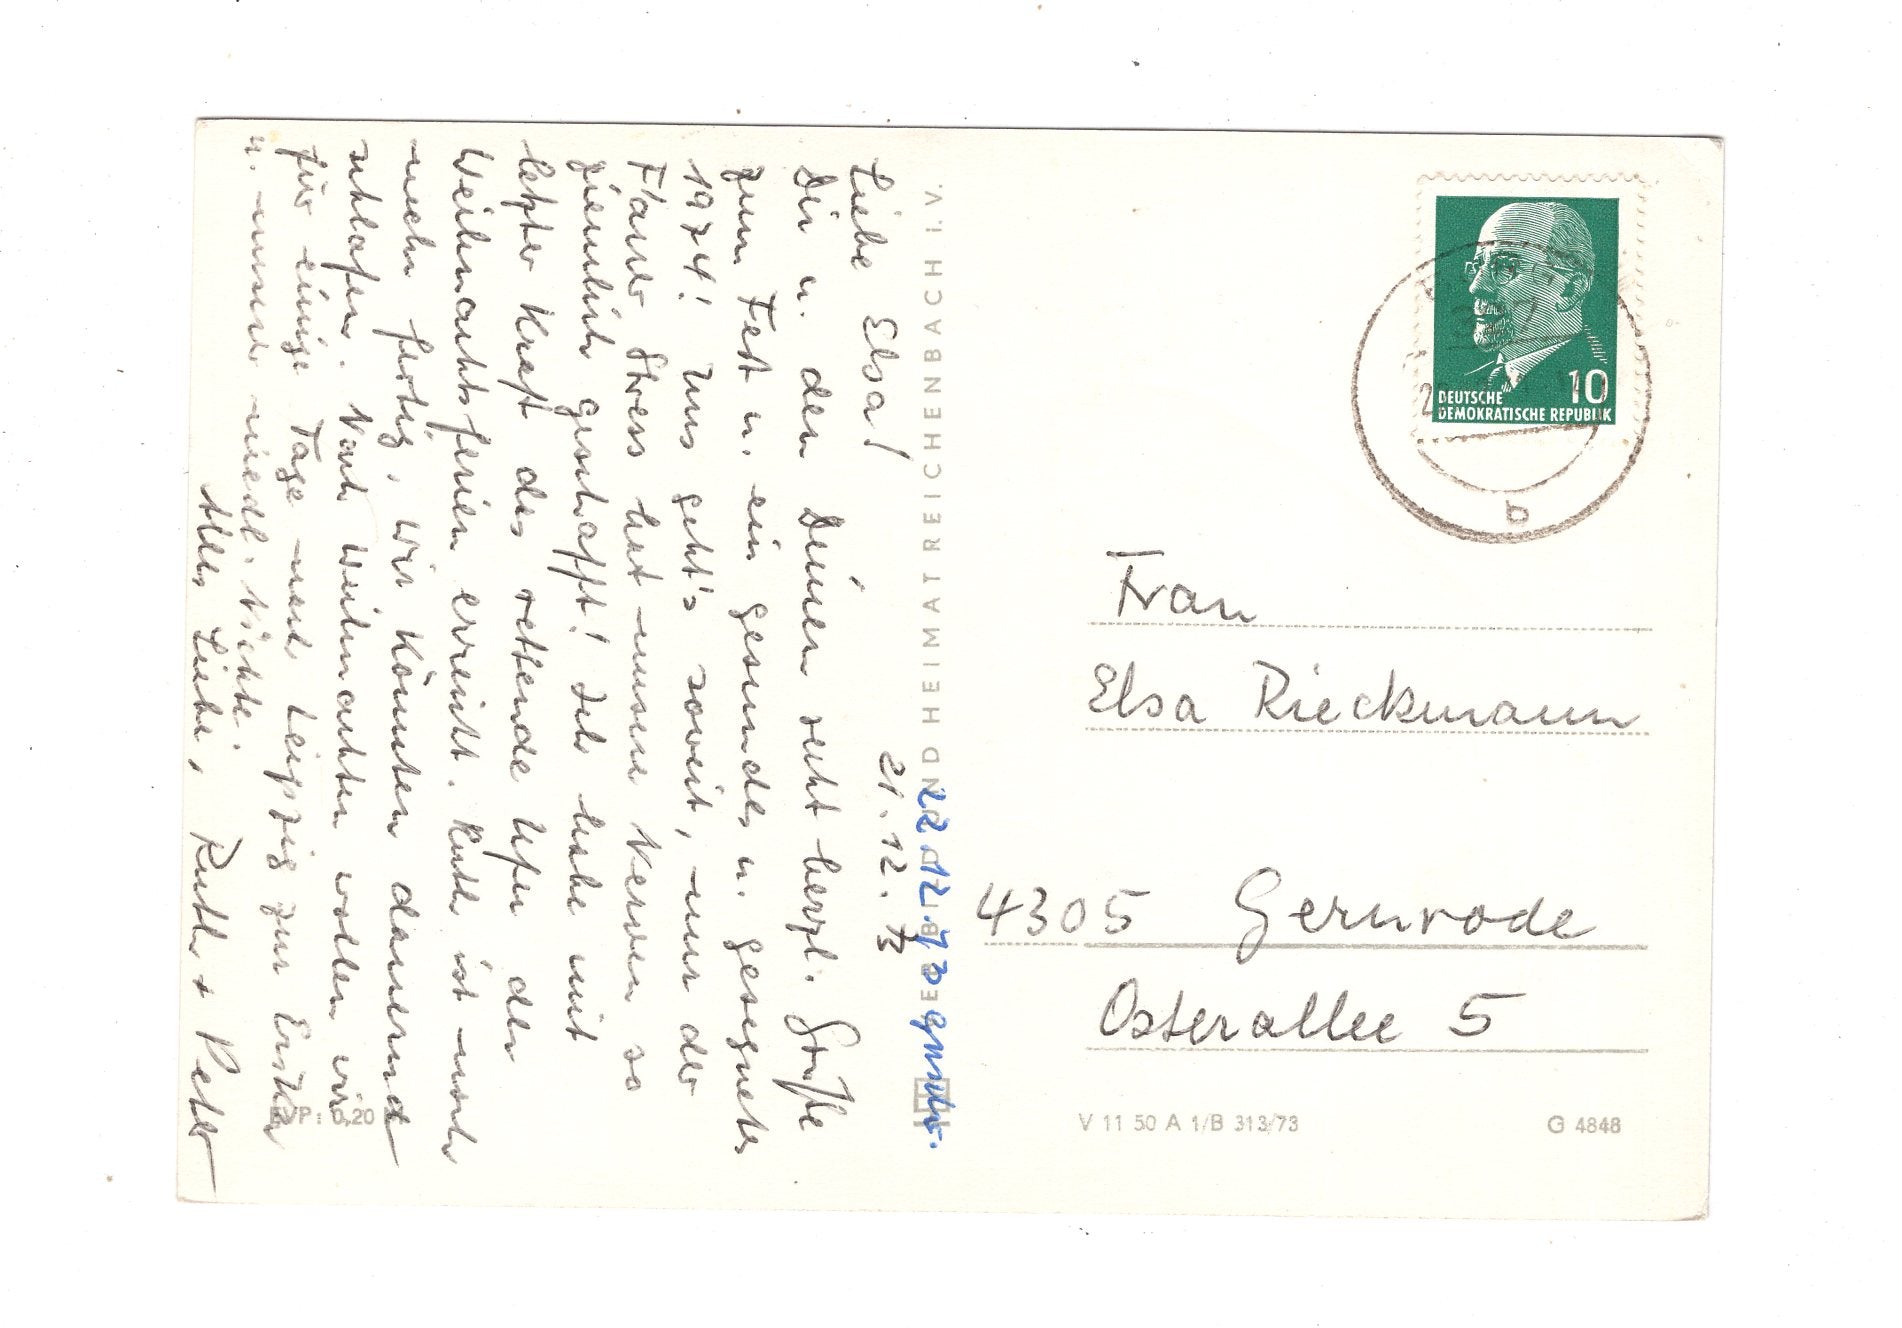 21.12.73
Liebe Elsa!
Dir u. den Deinen recht herzl. Grüße
zum Fest u. ein gesundes u. gesegnetes
1974! Uns geht's soweit, nur der
Flauer Stress hat unsere Nerven so
ziemlich geschafft! Ich habe mit
letzter Kraft das rettende Ufer der
Weihnachtsferien erreicht. Ruth ist noch
mehr fertig, wir könnten dauernd
schlafen. Nach Weihnachten wollen wir
für einige Tage nach Leipzig zur Erika
u. unserer niedl. Nichte.
Alles Liebe, Ruth + Peter
EVP: 0,20 M
BILD UND HEIMAT REICHENBACH I. V.
22.12.73
DEUTSCHE
DEMOKRATISCHE REPUBLIK
10
b
Frau
Elsa Rieckmann
4305 Gernrode
Osterallee 5
V 11 50 A 1/B 313/73
G 4848